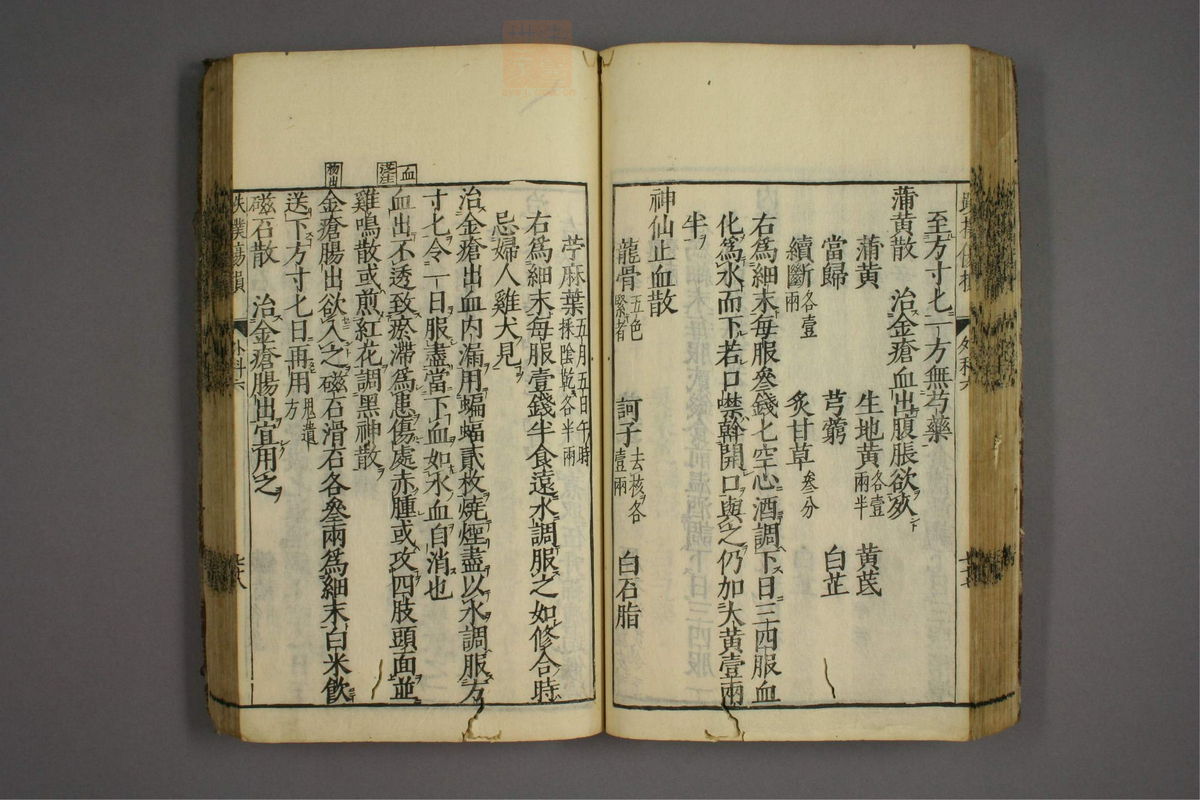 至方寸匕一方無芍藥
蒲黃散　治金瘡血出腹脹欲死
蒲黃　生地黃各壹兩半　黃芪
當歸　芎藭　白芷
續斷各壹兩　炙甘草叄分
右爲細末每服叄錢匕空心酒調下日三四服血
化爲水而下若口噤斡開口與之仍加大黃壹兩
半
神仙止血散
龍骨五色緊者　訶子去核各壹兩　白石脂
苧麻葉五月五日午時採陰乾各半兩
右爲細末每服壹錢半食遠水調服之如修合時
忌婦人雞犬見
治金瘡出血內漏用蝙蝠貳枚燒煙盡以水調服方
寸匕令一日服盡當下血如水血自消也
血出不透致瘀滯爲患傷處赤腫或攻四肢頭面並
雞鳴散或煎紅花調黑神散
金瘡腸出欲入之磁石滑石各叄兩爲細末白米飲
送下方寸匕日再用鬼遺方
磁石散　治金瘡腸出宜用之
血
物出
外科六
外科六